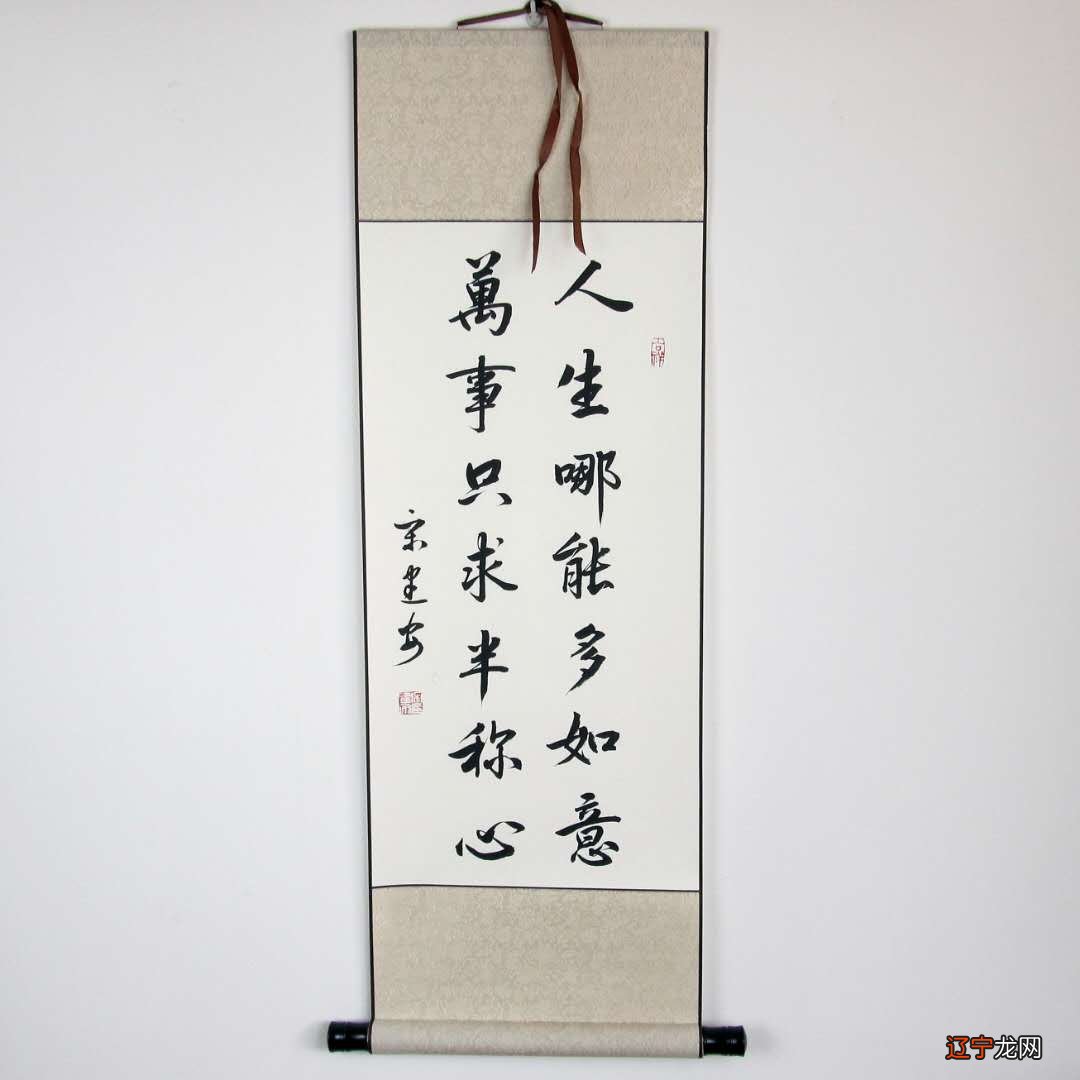 人生哪能多如意
萬事只求半称心
宋建安
辽宁龙网